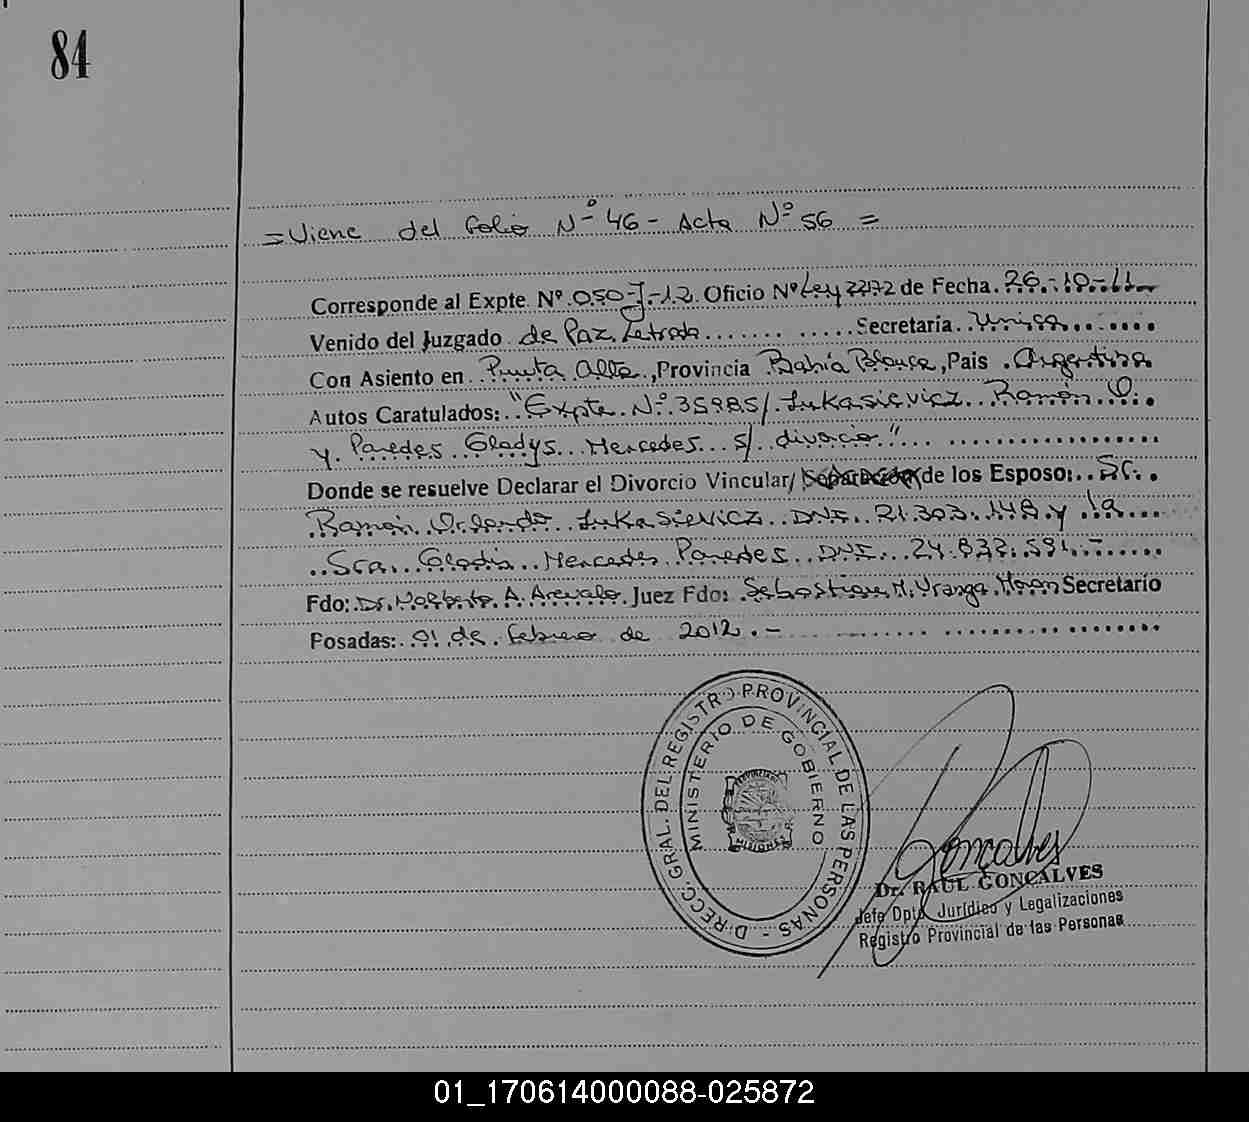 84
= Viene del Folio Nº 46 - Acta Nº 56 =
Corresponde al Expte Nº 050-J-12 Oficio Nº Ley 22172 de Fecha 26-10-11
Venido del Juzgado de Paz Letrado Secretaría Unica
Con Asiento en Punta Alta, Provincia Bahía Blanca, Pais Argentina
Autos Caratulados: "Expte Nº 35985/ Lukasievicz Ramón O.
y Paredes Gladys Mercedes s/ divorcio"
Donde se resuelve Declarar el Divorcio Vincular/ Separación de los Esposo: Sr.
Ramón Orlando Lukasievicz DNI 21.303.148 y la
Sra. Gladis Mercedes Paredes DNI 24.832.591.-
Fdo: Dr. Norberto A. Arevalo Juez Fdo: Sebastian M. Uranga Moran Secretario
Posadas: 01 de Febrero de 2012.-
DIRECC. GRAL. DEL REGISTRO PROVINCIAL DE LAS PERSONAS -
MINISTERIO DE GOBIERNO
MISIONES
Goncalves
Dr. RAUL GONCALVES
Jefe Dpto Jurídico y Legalizaciones
Registro Provincial de las Personas
01_170614000088-025872